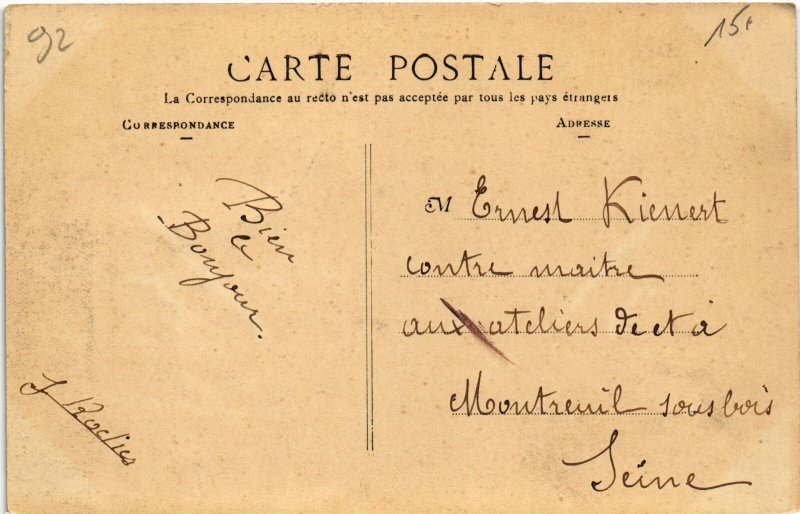 92
15
CARTE POSTALE
La Correspondance au recto n'est pas acceptée par tous les pays étrangers
CORRESPONDANCE
ADRESSE
Bien
le
Bonjour.
M Ernest Kienert
contre maitre
aux ateliers de et à
Montreuil sous bois
Seine